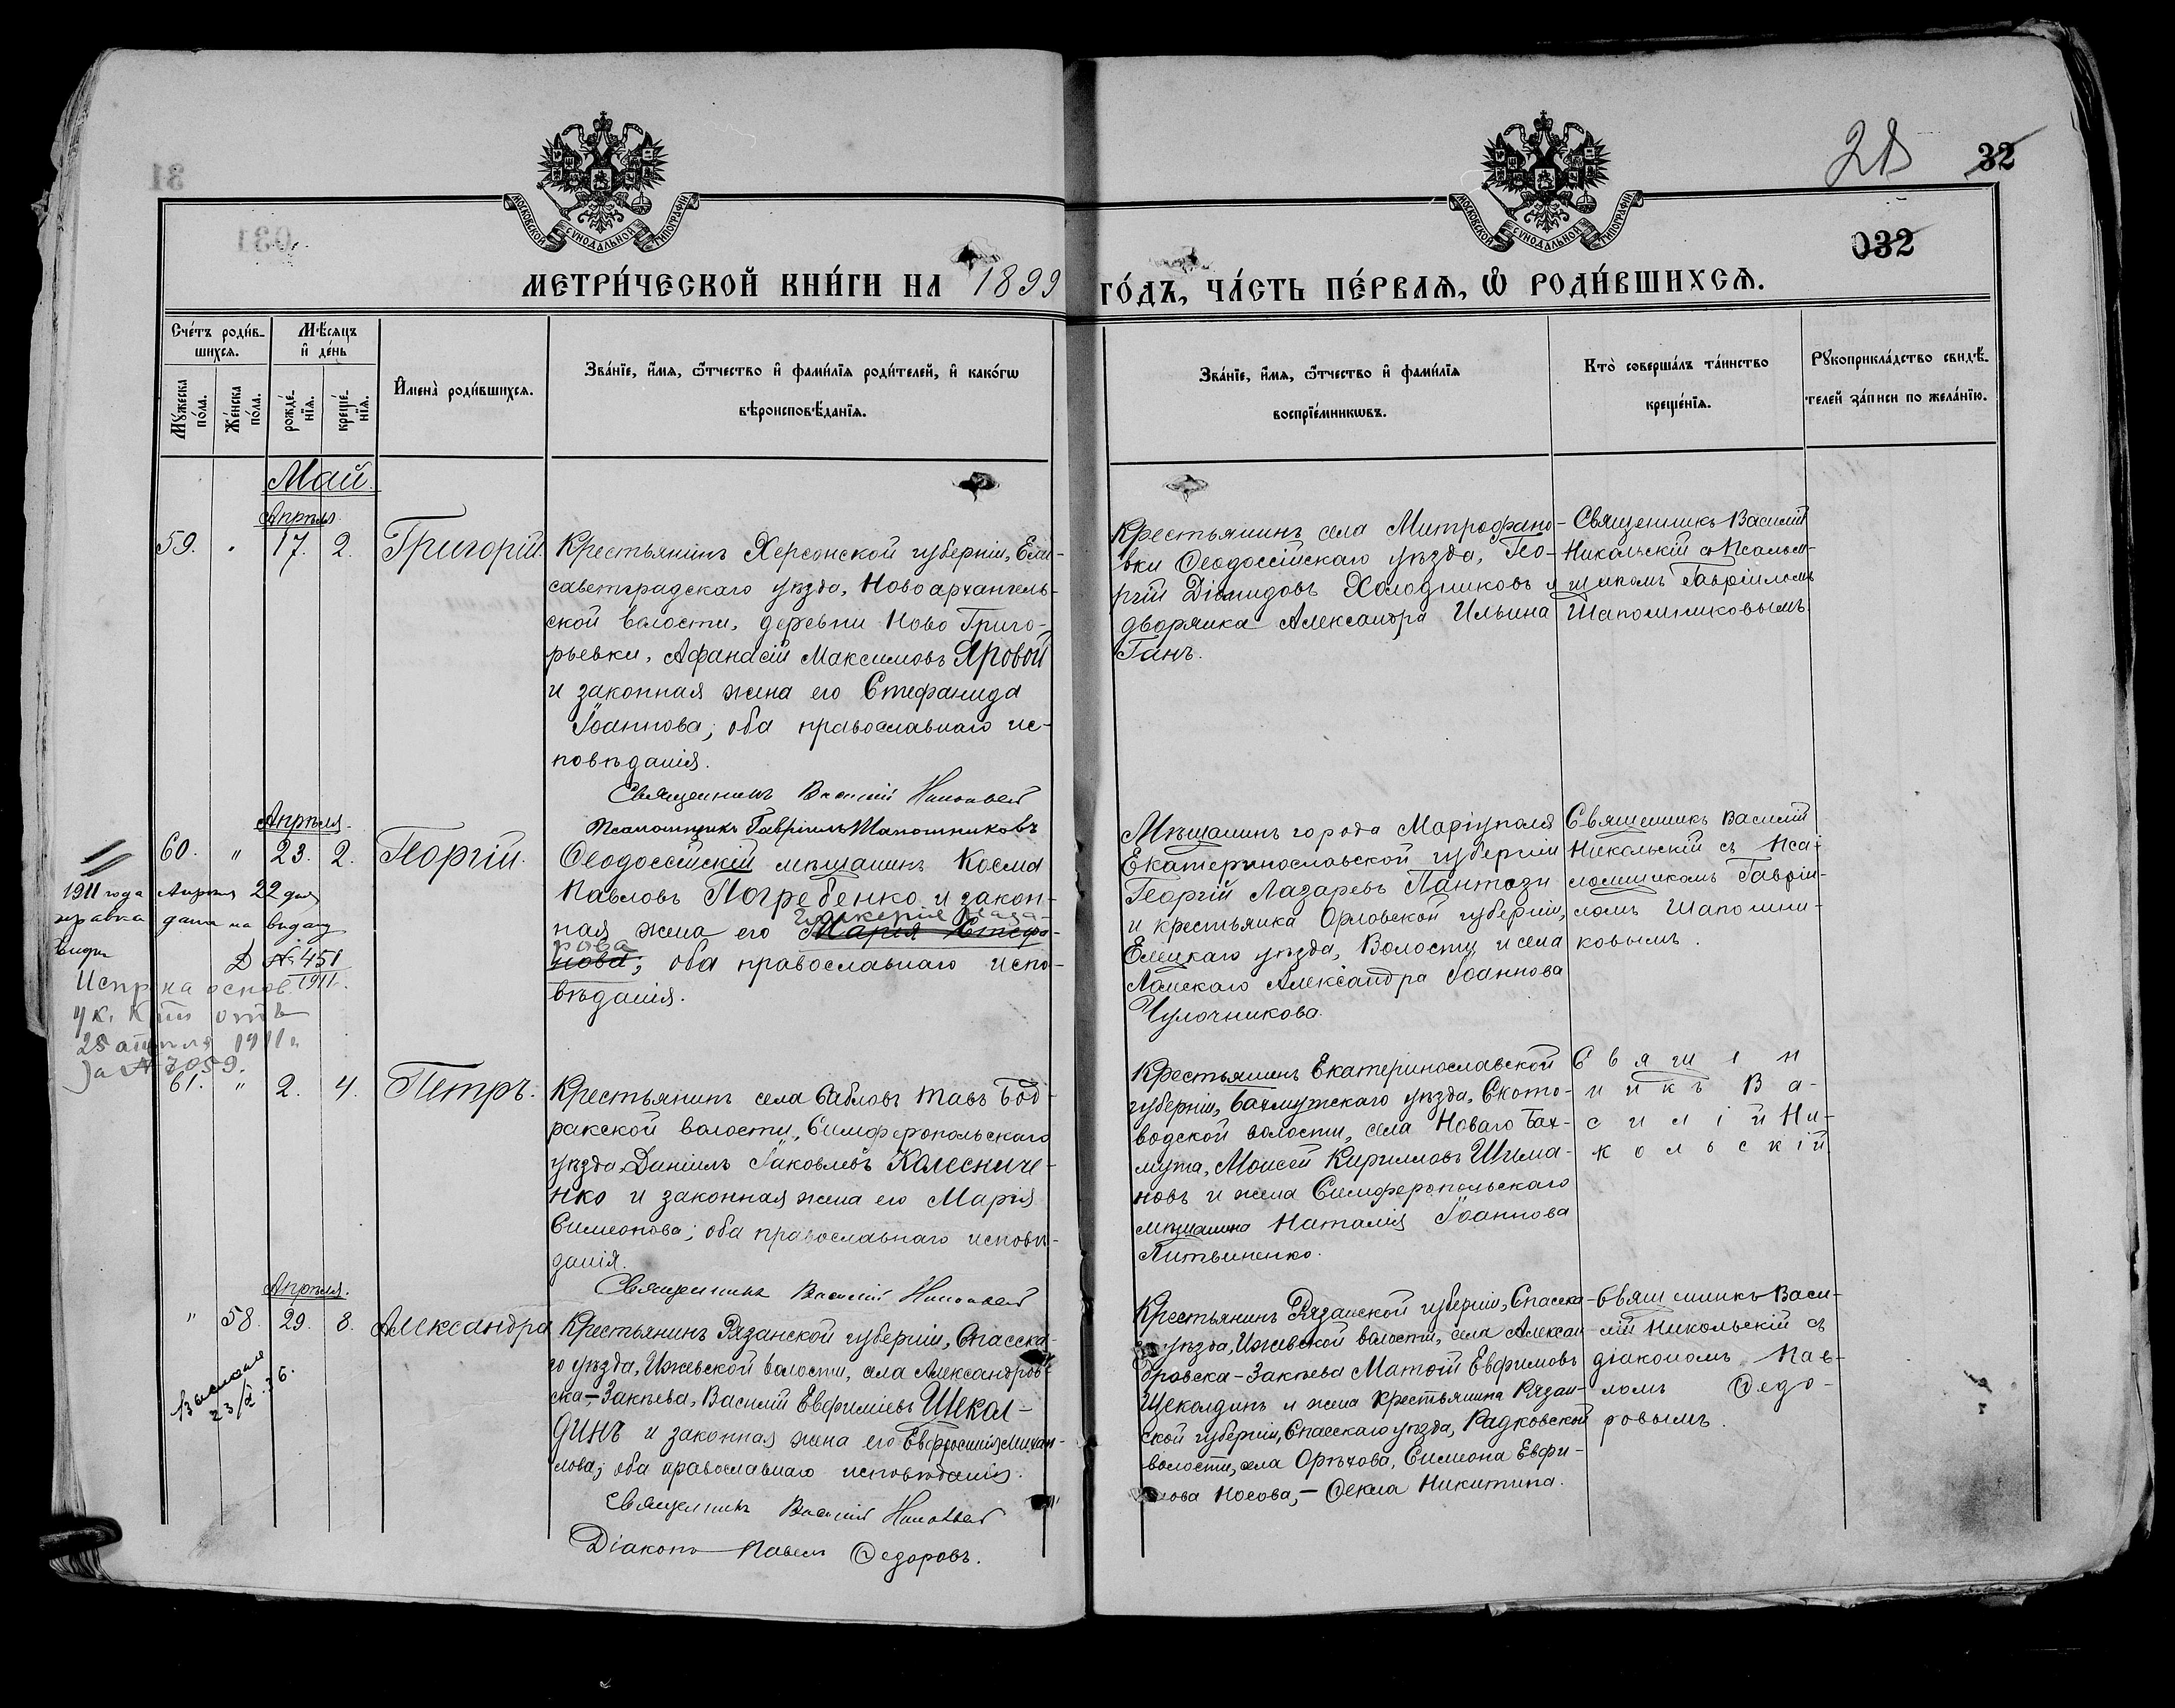 28 32
032
МОСКОВСКОЙ СѴНОДАЛЬНОЙ ТИПОГРАФІИ
МОСКОВСКОЙ СѴНОДАЛЬНОЙ ТИПОГРАФІИ
МЕТРИ́ЧЕСКОЙ КНИ́ГИ НА 1899 ГО́ДЪ, ЧА́СТЬ ПЕ́РВАѦ, Ѡ҆ РОДИ́ВШИХСѦ.
Сче́тъ роди́в-
шихсѧ.
Мѣ́сѧцъ
и҆ де́нь
Мꙋ́жеска
по́ла.
Же́нска
по́ла.
рожде́-
нїѧ.
креще́-
нїѧ.
И҆мена̀ роди́вшихсѧ.
Зва́нїе, и҆́мѧ, ѻ҆́тчество и҆ фами́лїѧ роди́телей, и҆ како́гѡ
вѣроисповѣ́данїѧ.
Зва́нїе, и҆́мѧ, ѻ҆́тчество и҆ фами́лїѧ
воспрїе́мникѡвъ.
Кто̀ соверша́лъ та́инство
креще́нїѧ.
Рꙋкоприкла́дство свидѣ́-
телей за́писи по жела́нїю.
Май.
Апрѣля.
59. " 17. 2. Григорій.
Крестьянинъ Херсонской губерніи, Ели-
саветградскаго уѣзда, Новоархангель-
ской волости, деревни Ново Григо-
рьевки, Афанасій Максимовъ Яровой
и законная жена его Стефанида
Іоаннова; оба православнаго ис-
повѣданія.
Священникъ Василій Никольскій
Псаломщикъ Гавріилъ Шапошниковъ
Крестьянинъ села Митрофано-
вки Ѳеодосійскаго уѣзда, Гео-
ргій Діомидовъ Холодняковъ и
дворянка Александра Ильина
Ганъ.
Священникъ Василій
Никольскій съ Псалом-
щикомъ Гавріиломъ
Шапошниковымъ.
Апрѣля.
60. " 23. 2. Георгій.
Ѳеодосійскій мѣщанинъ Косма
Павловъ Погребенко и закон-
ная жена его Марія Стефа-
нова; оба православнаго испо-
вѣданія.
Мѣщанинъ города Маріуполя
Екатеринославской губерніи
Георгій Лазаревъ Пантази
и крестьянка Орловской губерніи,
Елецкаго уѣзда, Волости и села
Ламскаго Александра Іоаннова
Чулочникова.
Священникъ Василій
Никольскій съ Пса-
ломщикомъ Гавріи-
ломъ Шапошни-
ковымъ.
1911 года Апрѣля 22 дня
дана на выдачу
№ 451
1911.
Испр на основ.
ук. от
25 апрѣля 1911 г
за № 7059.
61. " 2. 4. Петръ.
Крестьянинъ села Саблы Тавъ Бод-
ракской волости, Симферопольскаго
уѣзда, Даніилъ Іаковлевъ Колесниче-
нко и законная жена его Марія
Симеонова; оба православнаго исповѣ-
данія.
Священникъ Василій Никольскій
Крестьянинъ Екатеринославской
губерніи, Бахмутскаго уѣзда, Ското-
водской волости, села Новаго Бах-
мута, Моисей Кирилловъ Шима-
новъ и жена Симферопольскаго
мѣщанина Наталія Іоаннова
Литвиненко.
Священ
никъ Ва-
силій Ни-
кольскій
Апрѣля.
" 58. 29. 8. Александра
Крестьянинъ Рязанской губерніи, Спасска-
го уѣзда, Ижевской волости, села Александров-
ска-Закпева, Василій Евфиміевъ Щекол-
динъ и законная жена его Евфросинія Михаи-
лова; оба православнаго исповѣданія.
Священникъ Василій Никольскій
Діаконъ Павелъ Ѳедоровъ.
Крестьянинъ Рязанской губерніи, Спасска-
го уѣзда, Ижевской волости, села Алексан-
дровска-Закпева Матѳій Евфимовъ
Щеколдинъ и жена Крестьянина Рязан-
ской губерніи, Спасскаго уѣзда, Радковской
волости, села Орѣхова, Симеона Евфи-
мова Носова, - Ѳекла Никитина.
Священникъ Васи-
лій Никольскій съ
діакономъ Пав-
ломъ Ѳедо-
ровымъ.